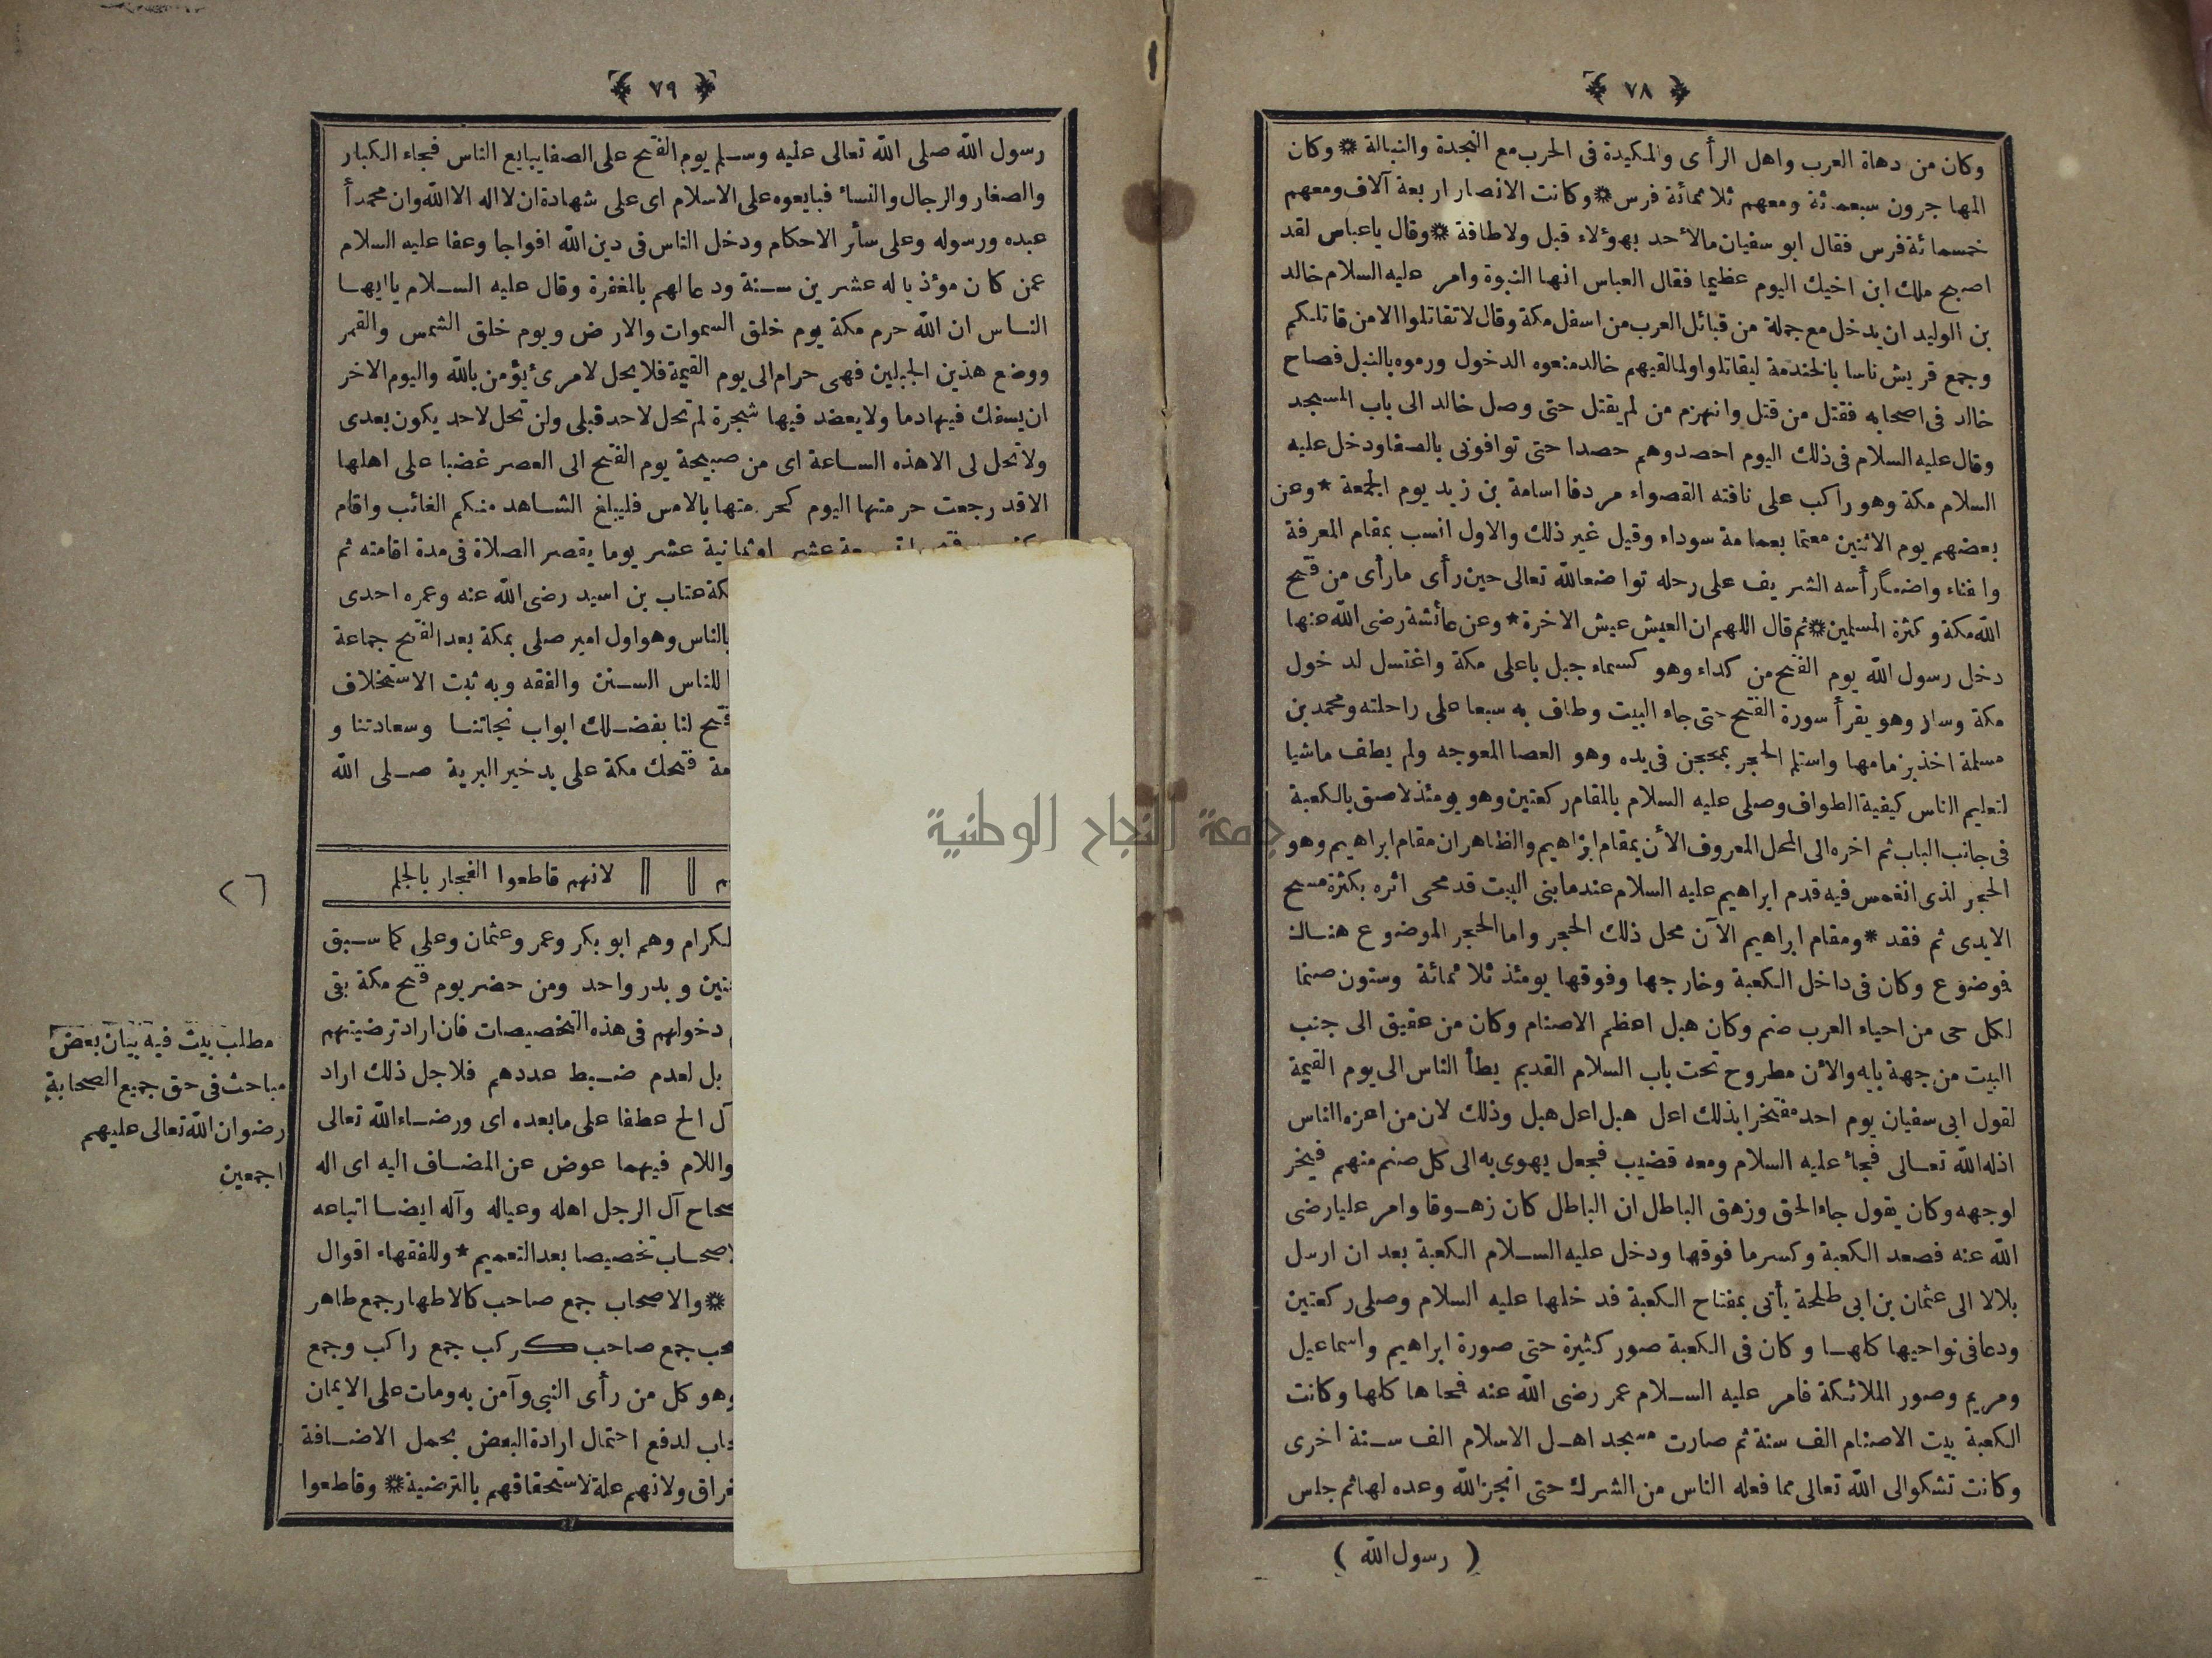 ﴿ ٧٨ ﴾
وكان من دهاة العرب واهل الرأى والمكيدة فى الحرب مع النجدة والنبالة * وكان
المهاجرون سبعمائة ومعهم ثلاثمائة فرس * وكانت الانصار اربعة آلاف ومعهم
خمسمائة فرس فقال ابو سفيان مالأحد بهؤلاء قبل ولاطاقة * وقال ياعباس لقد
اصبح ملك ابن اخيك اليوم عظيما فقال العباس انها النبوة وامر عليه السلام خالد
بن الوليد ان يدخل مع جملة من قبائل العرب من اسفل مكة وقال لاتقاتلوا الامن قاتلكم
وجمع قريش ناسا بالخندمة ليقاتلوا ولمالقيهم خالد منعوه الدخول ورموه بالنبل فصاح
خالد فى اصحابه فقتل من قتل وانهزم من لم يقتل حتى وصل خالد الى باب المسجد
وقال عليه السلام فى ذلك اليوم احصدوهم حصدا حتى توافونى بالصفا ودخل عليه
السلام مكة وهو راكب على ناقته القصواء مردفا اسامة بن زيد يوم الجمعة * وعن
بعضهم يوم الاثنين معتما بعمامة سوداء وقيل غير ذلك والاول انسب بمقام المعرفة
وافناء واضعا رأسه الشريف على رحله تواضعا لله تعالى حين رأى مارأى من فتح
الله مكة وكثرة المسلمين * ثم قال اللهم ان العيش عيش الاخرة * وعن عائشة رضى الله عنها
دخل رسول الله يوم الفتح من كداء وهو كسماء جبل باعلى مكة واغتسل لدخول
مكة وسار وهو يقرأ سورة الفتح حتى جاء البيت وطاف به سبعا على راحلته ومحمد بن
مسلمة اخذ بزمامها واستلم الحجر بمحجن فى يده وهو العصا المعوجه ولم يطف ماشيا
لتعليم الناس كيفية الطواف وصلى عليه السلام بالمقام ركعتين وهو يومئذ لاصق بالكعبة
فى جانب الباب ثم اخره الى المحل المعروف الأن بمقام ابراهيم والظاهر ان مقام ابراهيم وهو
الحجر لذى انغمس فيه قدم ابراهيم عليه السلام عند مابنى البيت قد محى اثره بكثرة مسح
الايدى ثم فقد * ومقام ابراهيم الآن محل ذلك الحجر واما الحجر الموضوع هناك
فوضوع وكان فى داخل الكعبة وخارجها وفوقها يومئذ ثلاثمائة وستون صنما
لكل حى من احياء العرب صنم وكان هبل اعظم الاصنام وكان من عقيق الى جنب
البيت من جهة بابه والأن مطروح تحت باب السلام القديم يطأ الناس الى يوم القيمة
لقول ابى سفيان يوم احد مفتخرا بذلك اعل هبل اعل هبل وذلك لان من اعزه الناس
اذله الله تعالى فجاء عليه السلام ومعه قضيب فجعل يهوى به الى كل صنم منهم فيخر
لوجهه وكان يقول جاء الحق وزهق الباطل ان الباطل كان زهوقا وامر عليا رضى
الله عنه فصعد الكعبة وكسر ما فوقها ودخل عليه السلام الكعبة بعد ان ارسل
بلالا الى عثمان بن ابى طلحة يأتى بمفتاح الكعبة فدخلها عليه السلام وصلى ركعتين
ودعا فى نواحيها كلها وكان فى الكعبة صور كثيرة حتى صورة ابراهيم واسماعيل
ومريم وصور الملائكة فامر عليه السلام عمر رضى الله عنه فمحاها كلها وكانت
الكعبة بيت الاصنام الف سنة ثم صارت مسجد اهل الاسلام الف سنة اخرى
وكانت تشكو الى الله تعالى مما فعله الناس من الشرك حتى انجز الله وعده لها ثم جلس
( رسول الله )
﴿ ٧٩ ﴾
رسول الله صلى الله تعالى عليه وسلم يوم الفتح على الصفا يبايع الناس فجاء الكبار
والصغار والرجال والنساء فبايعوه على الاسلام اى على شهادة ان لا اله الا الله وان محمدأ
عبده ورسوله وعلى سائر الاحكام ودخل الناس فى دين الله افواجا وعفا عليه السلام
عمن كان مؤذيا له عشرين سنة ودعا لهم بالمغفرة وقال عليه السلام ياايها
الناس ان الله حرم مكة يوم خلق السموات والارض ويوم خلق الشمس والقمر
ووضع هذين الجبلين فهى حرام الى يوم القيمة فلا يحل لامرئ يؤمن بالله واليوم الاخر
ان يسفك فيها دما ولا يعضد فيها شجرة لم تحل لاحد قبلى ولن تحل لاحد يكون بعدى
ولا تحل لى الاهذه الساعة اى من صبيحة يوم الفتح الى العصر غضبا على اهلها
الاقد رجعت حرمتها اليوم كحرمتها بالامس فليبلغ الشاهد منكم الغائب واقام
عشر اوثمانية عشر يوما يقصر الصلاة فى مدة اقامته ثم
عتاب بن اسيد رضى الله عنه وعمره احدى
بالناس وهو اول امير صلى بمكة بعد الفتح جماعة
للناس السنن والفقه وبه ثبت الاستخلاف
فتح لنا بفضلك ابواب نجاتنا وسعادتنا و
فتحك مكة على يد خير البرية صلى الله
لانهم قاطعوا الفجار بالجلم
٢٦
لكرام وهم ابو بكر وعمر وعثمان وعلى كما سبق
وبدر واحد ومن حضر يوم فتح مكة بقى
دخولهم فى هذه التخصيصات فان اراد ترضيتهم
بل لعدم ضبط عددهم فلاجل ذلك اراد
آل الخ عطفا على مابعده اى ورضاء الله تعالى
واللام فيهما عوض عن المضاف اليه اى اله
آل الرجل اهله وعياله وآله ايضا اتباعه
تخصيصا بعد التعميم * وللفقهاء اقوال
* والاصحاب جمع صاحب كالاطهار جمع طاهر
جمع صاحب كركب جمع راكب وجمع
وهو كل من رأى النبى وآمن به ومات على الايمان
لدفع احتمال ارادة البعض بحمل الاضافة
ولانهم علة لاستحقاقهم بالترضية * وقاطعوا
مطلب بيت فيه بيان بعض
مباحث فى حق جميع الصحابة
رضوان الله تعالى عليهم
اجمعين
جامعة النجاح الوطنية